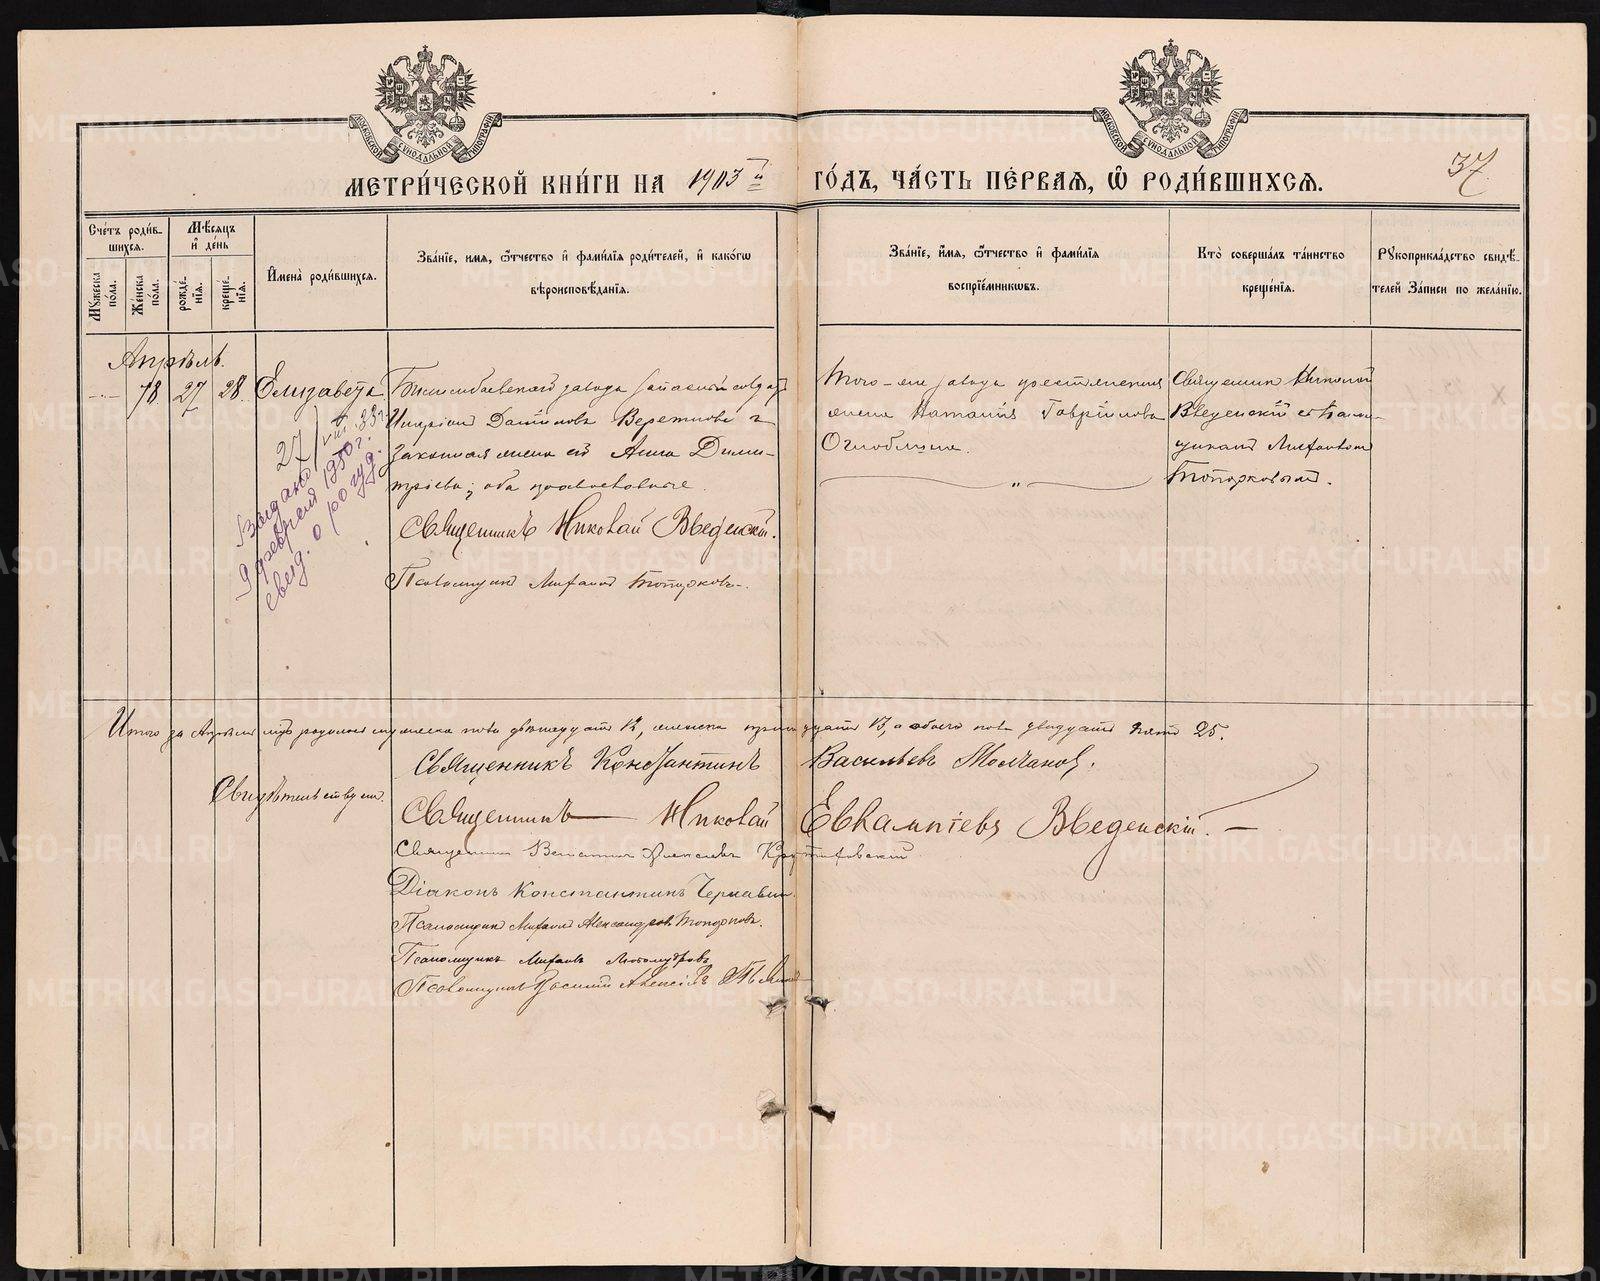 МОСКОВСКОЙ СѴНОДАЛЬНОЙ ТИПОГРАФІИ
МОСКОВСКОЙ СѴНОДАЛЬНОЙ ТИПОГРАФІИ
37
МЕТРИ́ЧЕСКОЙ КНИ́ГИ НА 1903 й ГО́ДЪ, ЧА́СТЬ ПЕ́РВАЯ, Ѽ РОДИ́ВШИХСЯ.
Сче́тъ роди́в-
шихся.
Мѣ́сяцъ
и҆ де́нь
Мꙋжеска по́ла.
Же́нска по́ла.
рожде́-
нїѧ.
креще́-
нїѧ.
И҆мена̀ роди́вшихся.
Зва́нїе, и́мя, ѻ҆́тчество и҆ фами́лїя роди́телей, и҆ како́гѡ
вѣроисповѣ́данїя.
Зва́нїе, и҆́мя, ѻ҆́тчество и҆ фами́лїя
воспрїе́мникѡвъ.
Кто̀ соверша́лъ та́инство
креще́нїя.
Рꙋкоприкла́дство свидѣ́-
телей За́писи по жела́нїю.
Апрѣль.
78 27 28. Елизавета
завода запасный солдат
Даніиловъ Веретновъ и
законная жена его Анна Дими-
тріева; оба православные.
Священникъ Николай Введенскій.
Псаломщикъ Михаилъ Топорковъ.
Того-же завода крестьянская
жена Наталія Гаврилова
Священникъ Николай
Введенскій съ псалом-
щикомъ Михаиломъ
Топорковымъ.
27/VIII 33 г.
Выдано
9 февраля 1950 г.
свид. о рожд.
Итого за Апрѣль мѣс. родилось мужеска пола двѣнадцать 12, женска тринадцать 13, а обоего пола двадцать пять 25.
Священникъ Константинъ Васильевъ Молчановъ.
Свидѣтельствуем.
Священникъ Николай Евлампіевъ Введенскій.
Священникъ Алексѣевъ
Діаконъ Константинъ Чернавин
Псаломщикъ Михаилъ Александровъ Топорковъ.
Псаломщикъ Михаилъ Любомудровъ
Псаломщикъ Василій Алексѣевъ
METRIKI.GASO-URAL.RU